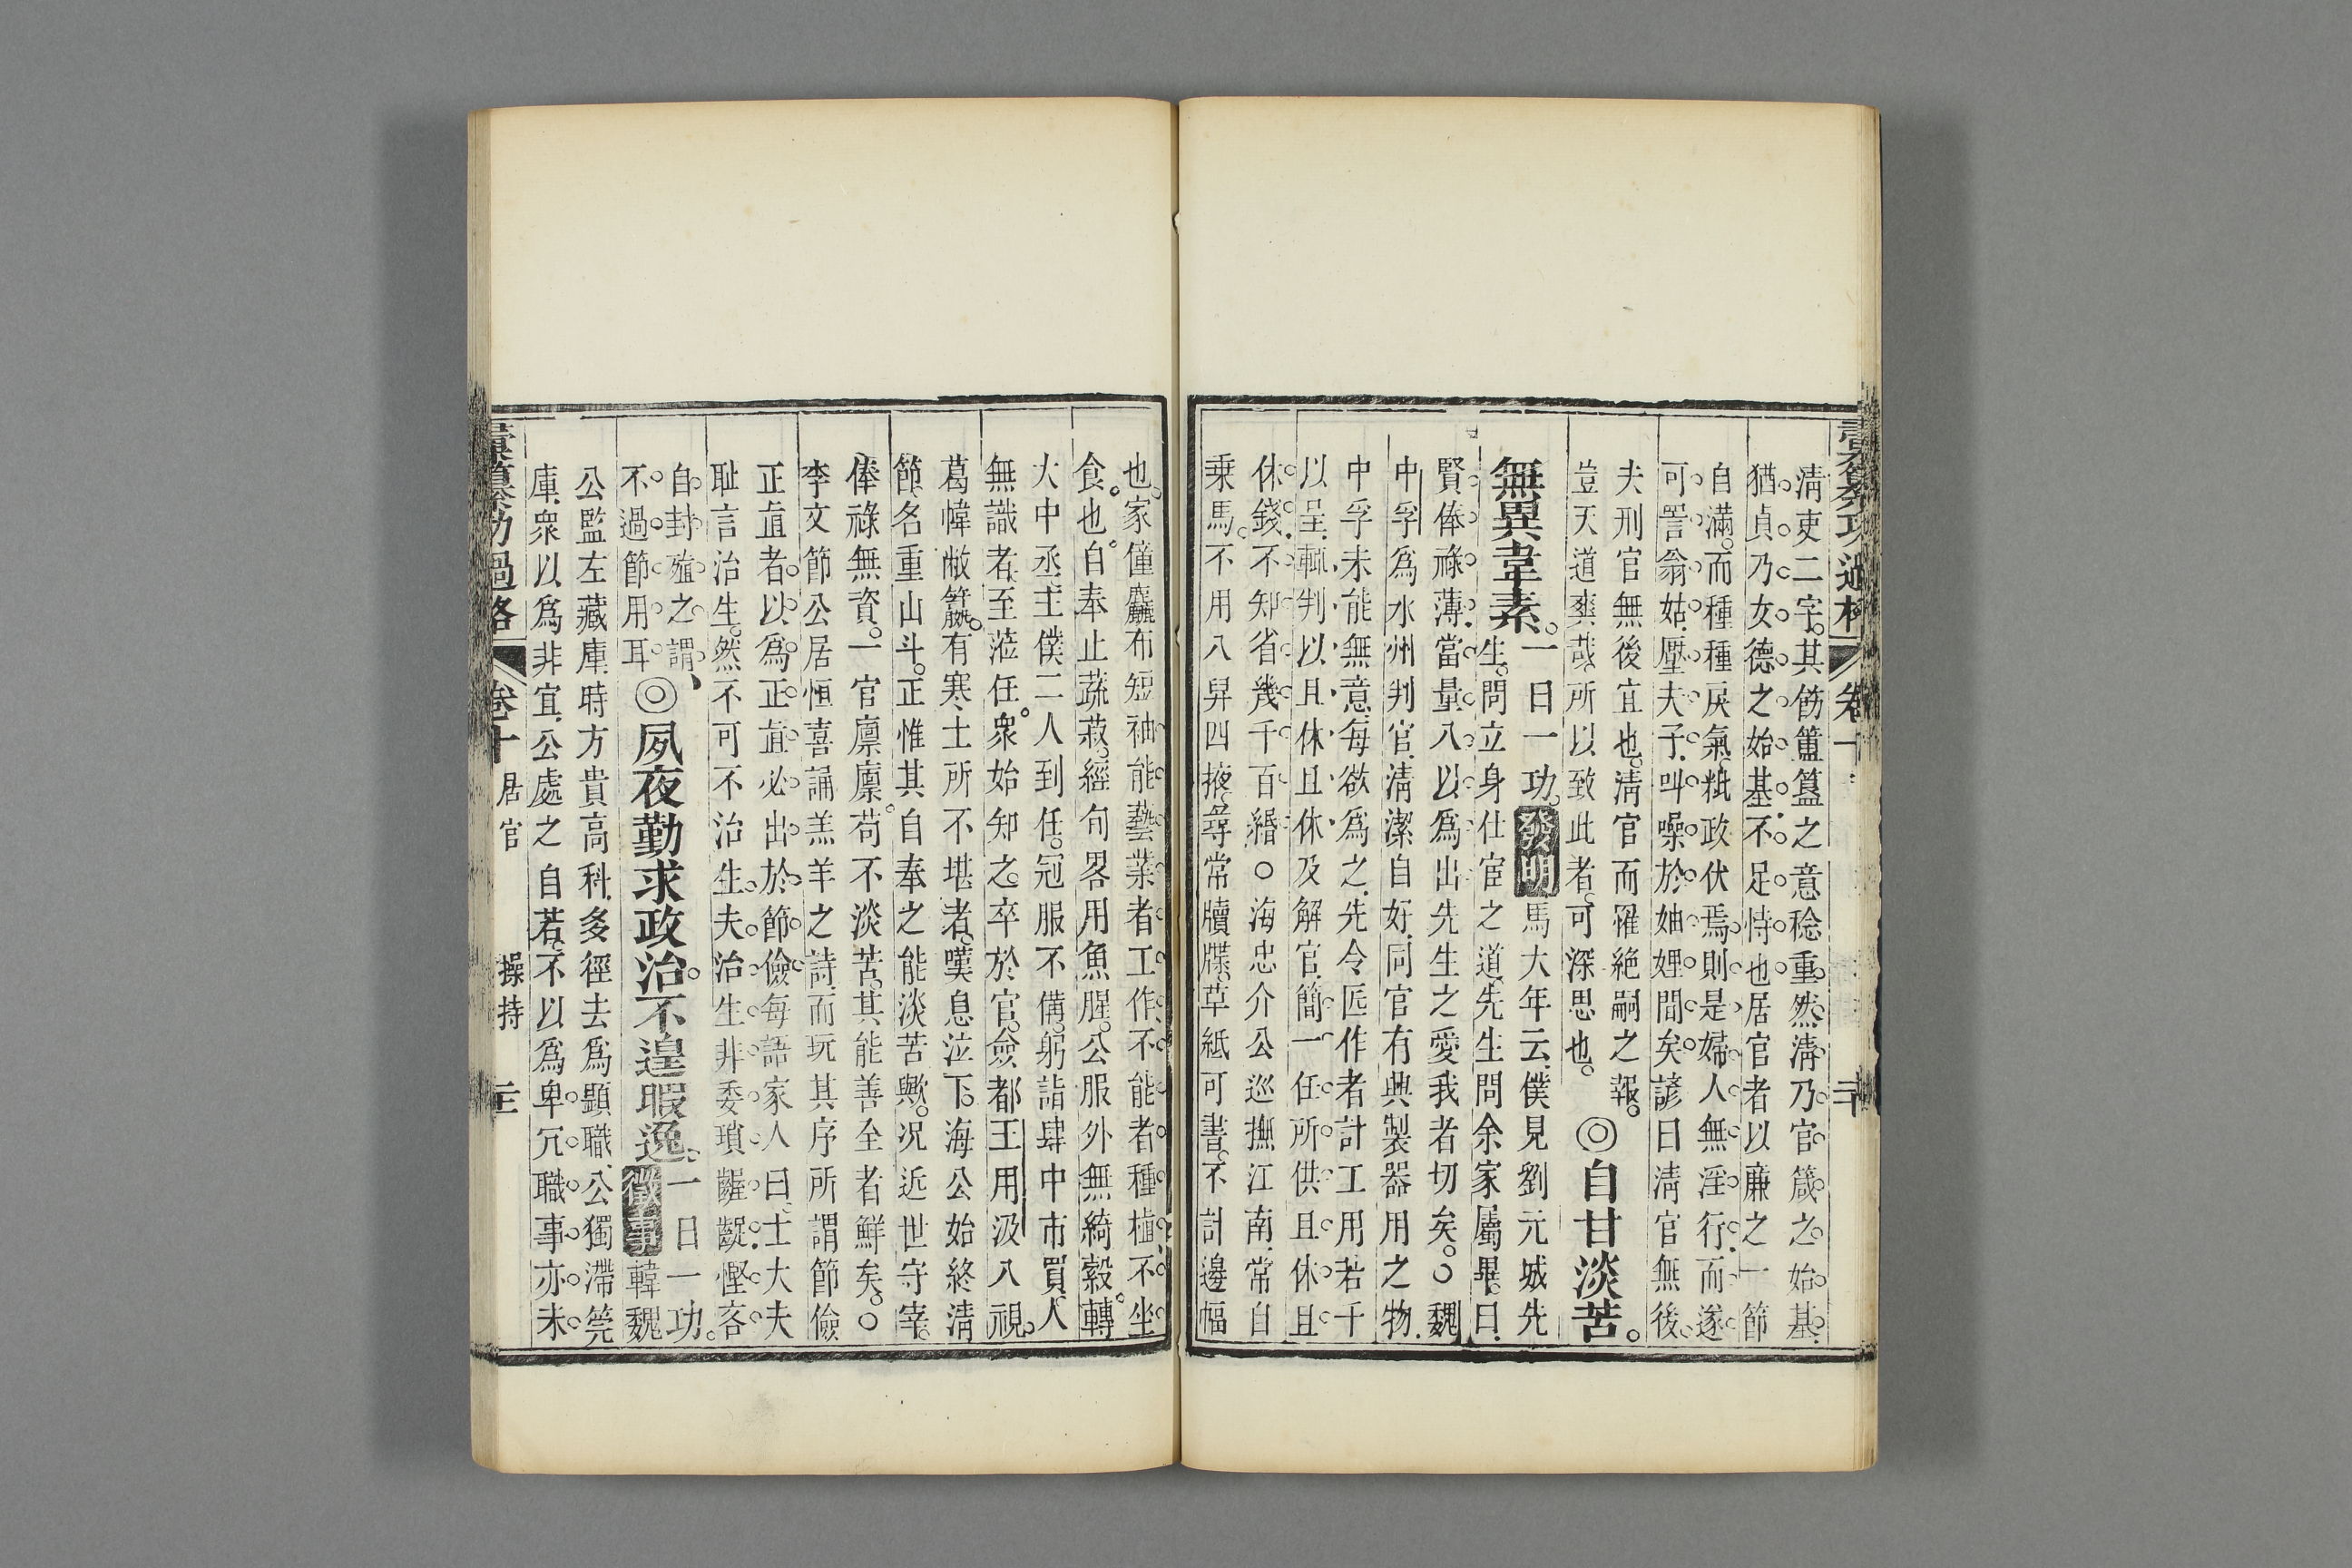 彙纂功過格 卷十 二十
清吏二字。其飭簠簋之意稔重。然淸乃官箴之始基。
猶貞乃女德之始基。不足恃也。居官者以廉之一節
自滿。而種種戾氣粃政伏焉。則是婦人無淫行。而遂
可詈翁姑。壓夫子。叫噪於妯娌間矣。諺曰淸官無後。
夫刑官無後宜也。淸官而罹絶嗣之報。
豈天道爽哉。所以致此者。可深思也。◎自甘淡苦。
無異韋素。一日一功。發明馬大年云。僕見劉元城先
生。問立身仕宦之道。先生問余家屬畢。曰。
賢俸祿薄。當量入以爲出。先生之愛我者切矣。○魏
中孚爲水州判官。淸潔自好。同官有典製器用之物。
中孚未能無意。每欲爲之。先令匠作者計工用若干
以呈。輒判以且休且休。及解官。簡一任所供且休且
休。錢不知省幾千百緡。○海忠介公巡撫江南。常自
乗馬。不用八舁四掖。尋常牘牒。草紙可書。不計邊幅
也。家僮麤布短袖。能藝業者工作。不能者種植。不坐
食也。自奉止蔬菽。經旬畧用魚腥。公服外無綺縠。轉
大中丞。主僕二人到任。冠服不備。躬詣肆中市買。人
無識者。至蒞任。衆始知之。卒於官。僉都王用汲入視。
葛幃敝籯。有寒士所不堪者。嘆息泣下。海公始終淸
節。名重山斗。正惟其自奉之能淡苦歟。况近世守宰。
俸祿無資。一官廩廩。苟不淡苦。其能善全者鮮矣。○
李文節公居恒喜誦羔羊之詩。而玩其序所謂節儉
正直者。以爲正直必出於節儉。每語家人曰。士大夫
耻言治生。然不可不治生。夫治生非委瑣齷齪慳吝
自封殖之謂、一日一功。
不過節用耳◎夙夜勤求政治。不遑暇逸。徵事韓魏
公監左藏庫。時方貴高科。多徑去爲顯職。公獨滯筦
庫。衆以爲非宜。公處之自若。不以爲卑冗。職事亦未
彙纂功過格 卷十 居官 操持 二十